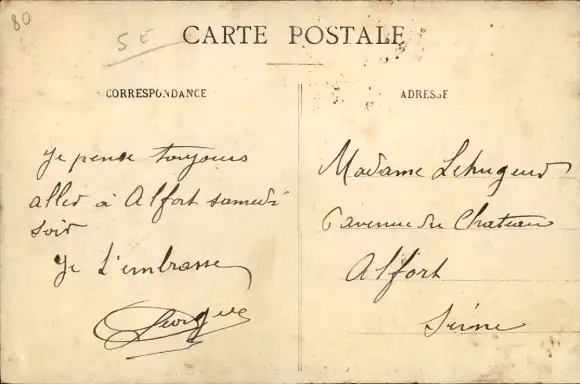 80
5 E
CARTE POSTALE
CORRESPONDANCE
Je pense toujours
aller à Alfort samedi
soir
Je t'embrasse
Georges
ADRESSE
Madame
6 avenue du Chateau
Alfort
Seine